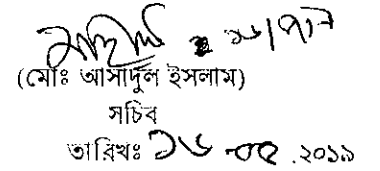 (মোঃ আসাদুল ইসলাম)
সচিব
তারিখঃ ১৬-০৫.২০১৯